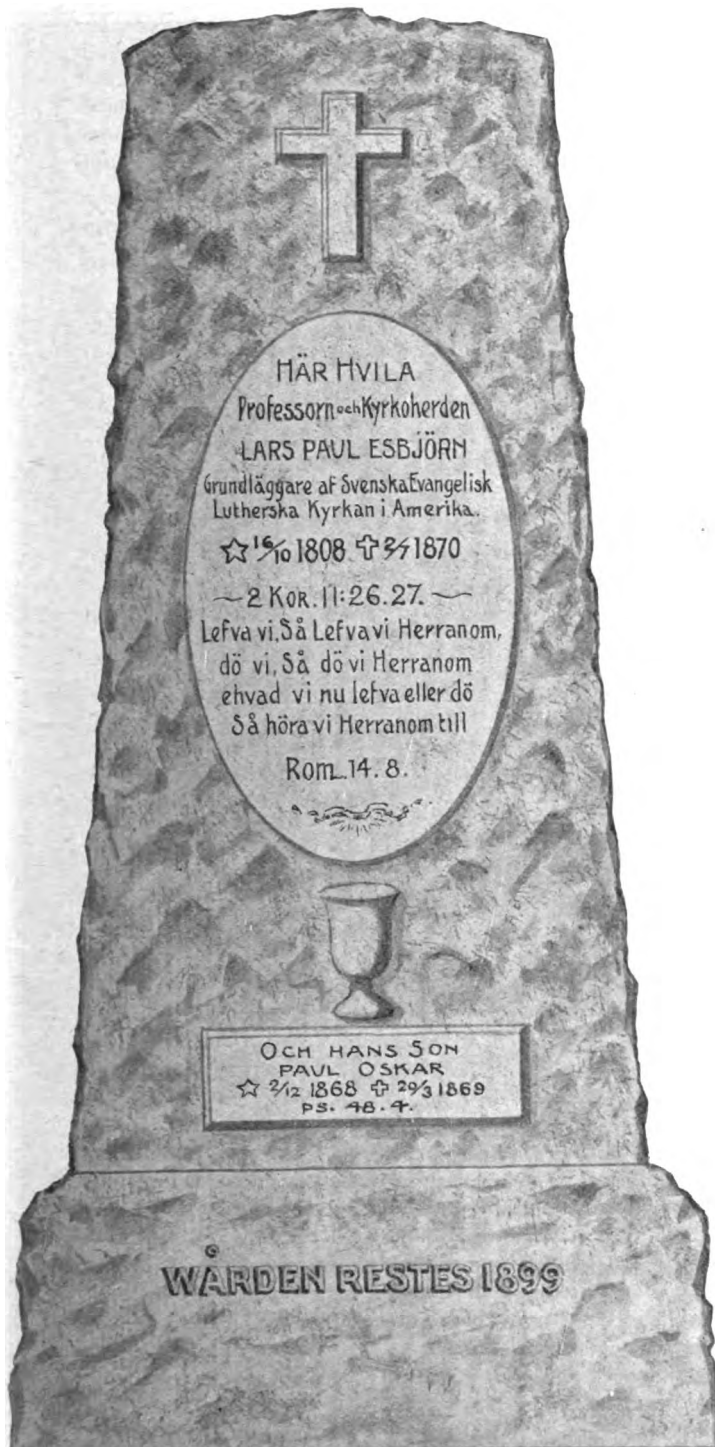 HÄR HVILA
Professorn och Kyrkoherden
LARS PAUL ESBJÖRN
Grundläggare af Svenska Evangelisk
Lutherska Kyrkan i Amerika.
☆ 16/10 1808 ✝ 2/7 1870
~2 KOR. 11:26.27.~
Lefva vi, Så Lefva vi Herranom,
dö vi, Så dö vi Herranom
ehvad vi nu lefva eller dö
Så höra vi Herranom till
Rom. 14. 8.
OCH HANS SON
PAUL OSKAR
☆ 2/12 1868 ✝ 29/3 1869
PS. 48. 4.
WÅRDEN RESTES 1899